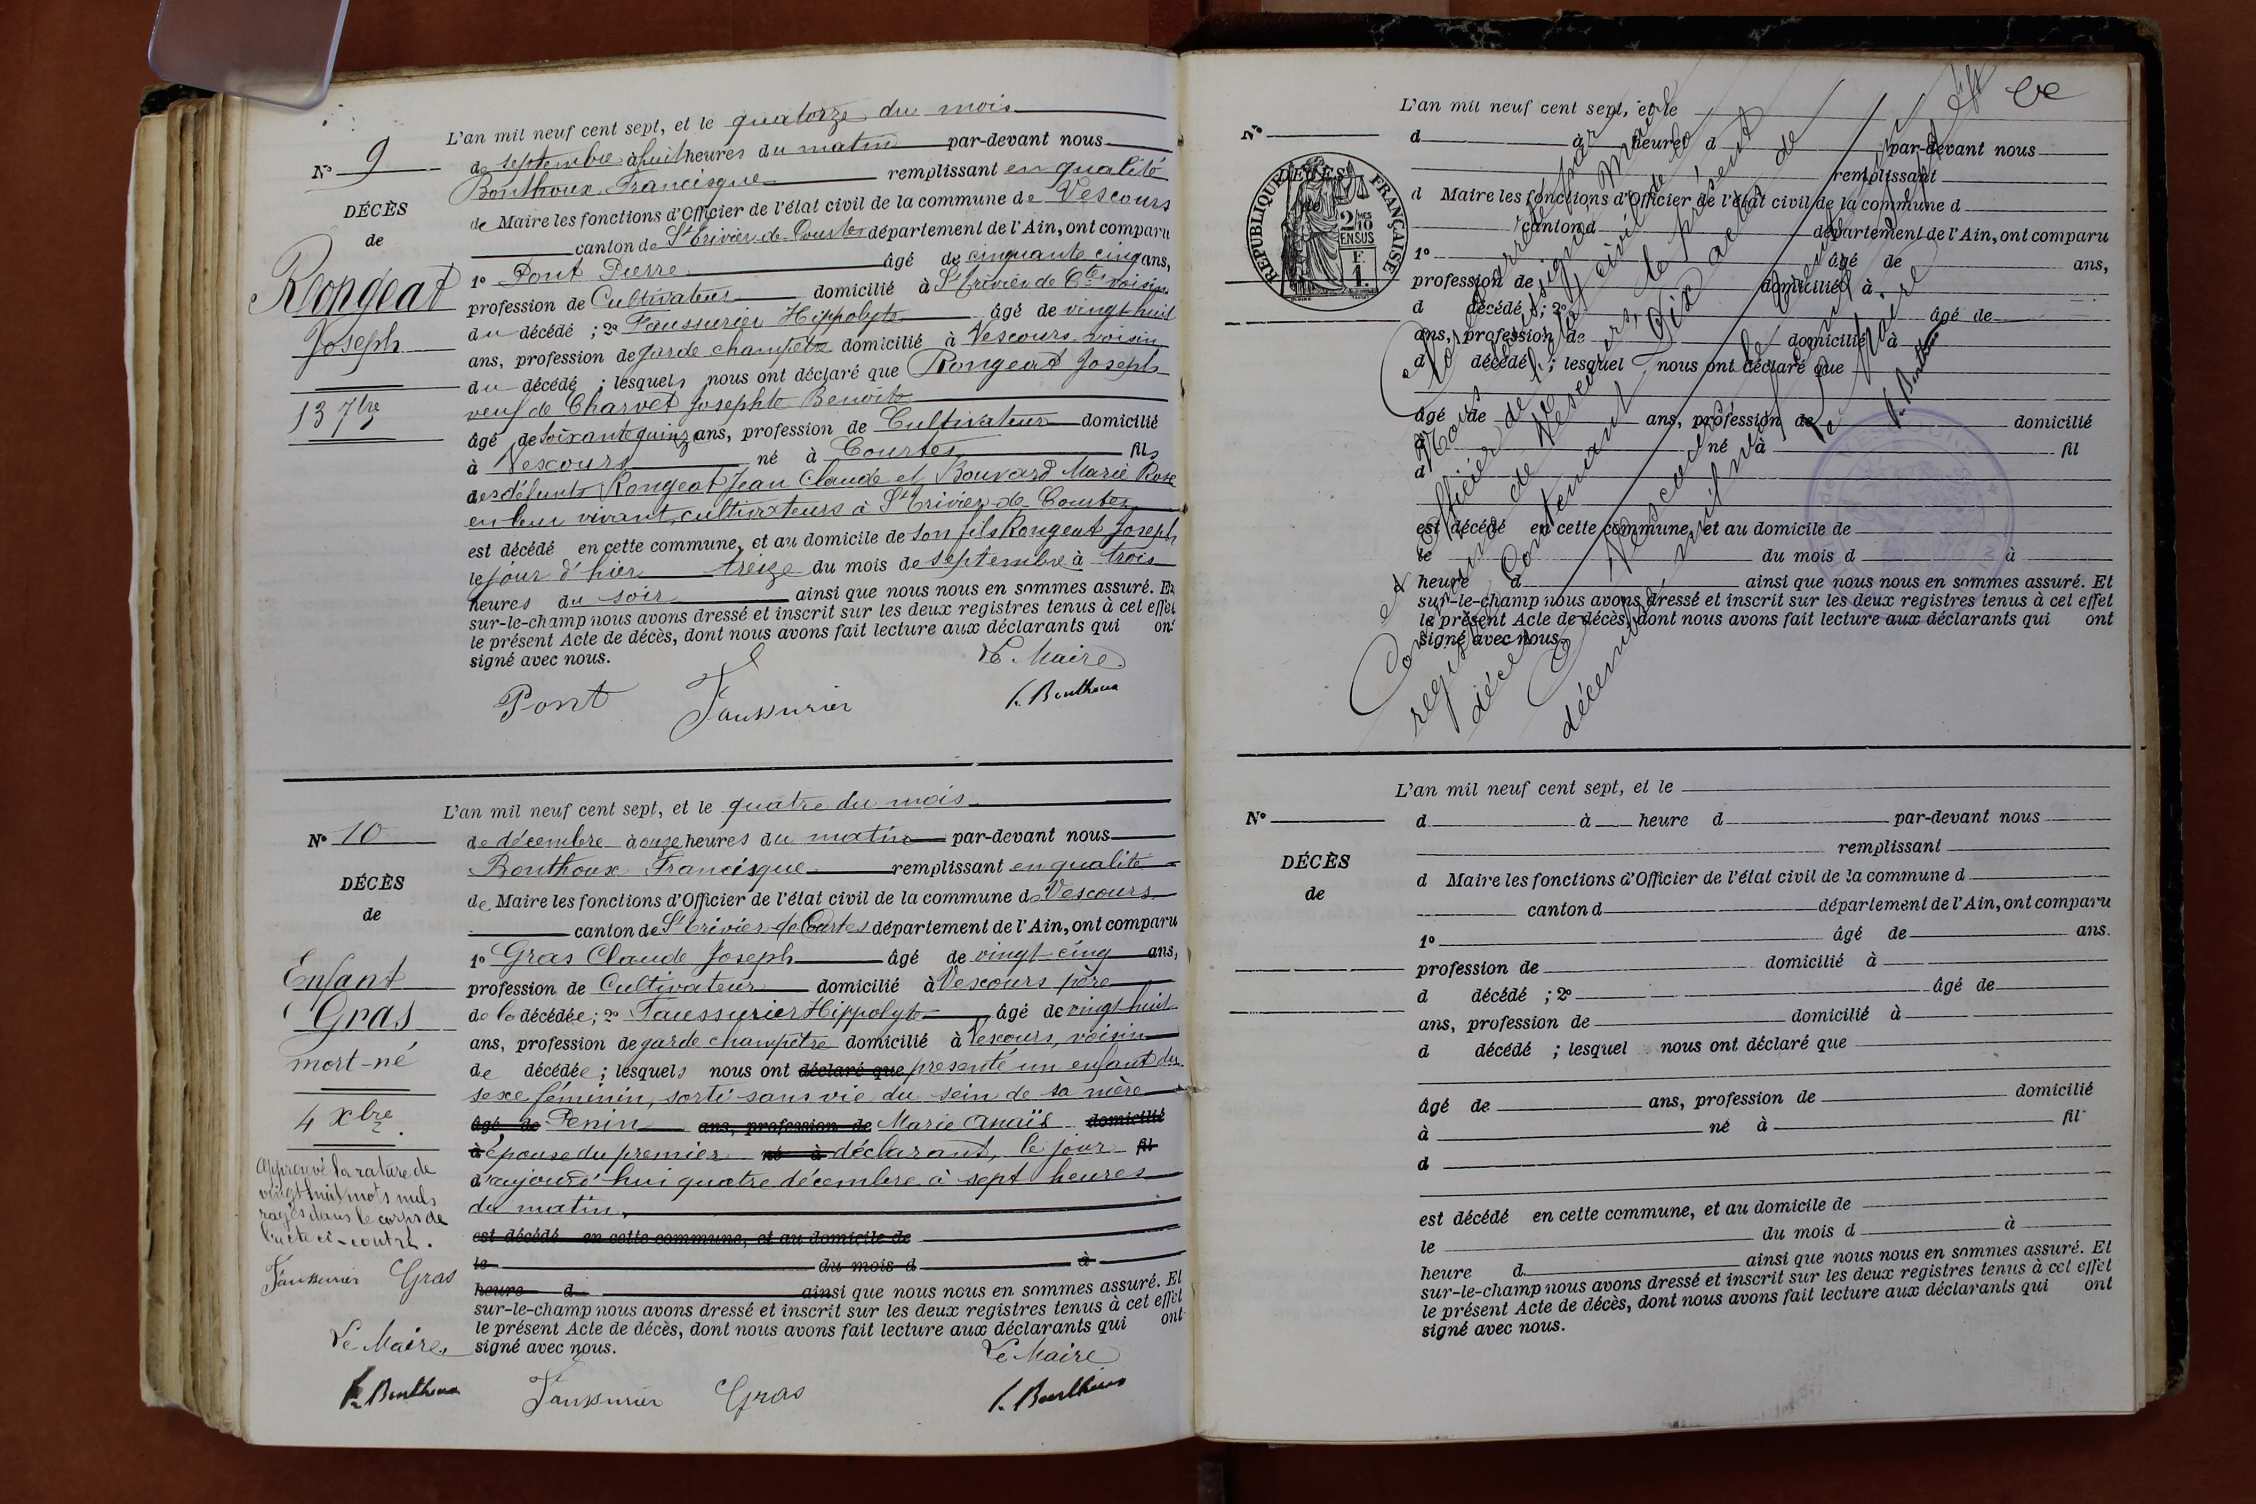 L'an mil neuf cent sept, et le quatorze du mois
N° 9
de septembre à huit heures du matin par-devant nous
Bonthoux Francisque remplissant en qualité
DÉCÈS
de Maire les fonctions d'Officier de l'état civil de la commune de Vescours
de
canton de St Trivier-de-Courtes département de l'Ain, ont comparu
Rongeat
1° Pont Pierre âgé de cinquante cinq ans,
profession de Cultivateur domicilié à St Trivier de Ctes voisin
Joseph
du décédé ; 2° Faussurier Hippolyte âgé de vingt huit
ans, profession de garde champêtre domicilié à Vescours voisin
du décédé ; lesquels nous ont déclaré que Rongeat Joseph
13 7bre
veuf de Charvet Josephte Benoite
âgé de soixante quinze ans, profession de Cultivateur domicilié
à Vescours né à Courtes fils
des défunts Rongeat Jean Claude et Bouvard Marie Rose
en leur vivant cultivateurs à St Trivier-de-Courtes
est décédé en cette commune, et au domicile de son fils Rongeat Joseph
le jour d'hier treize du mois de septembre à trois
heures du soir ainsi que nous nous en sommes assuré. Et
sur-le-champ nous avons dressé et inscrit sur les deux registres tenus à cet effet
le présent Acte de décès, dont nous avons fait lecture aux déclarants qui ont
signé avec nous. Le Maire
Pont Faussurier F. Bonthoux
L'an mil neuf cent sept, et le quatre du mois
N° 10
de décembre à onze heures du matin par-devant nous
Bonthoux Francisque remplissant en qualité
DÉCÈS
de Maire les fonctions d'Officier de l'état civil de la commune de Vescours
de
canton de St Trivier de Courtes département de l'Ain, ont comparu
1° Gras Claude Joseph âgé de vingt-cinq ans,
Enfant
profession de Cultivateur domicilié à Vescours père
Gras
de la décédée ; 2° Faussurier Hippolyte âgé de vingt huit
ans, profession de garde champêtre domicilié à Vescours, voisin
mort-né
de décédée ; lesquels nous ont déclaré que presenté un enfant du
sexe féminin, sorti sans vie du sein de sa mère
4 xbre.
âgé de Penin ans, profession de Marie Anaïs domicilié
à épouse du premier né à déclarant, le jour fil
d'aujourd'hui quatre décembre à sept heures
du matin.
Approuvé la rature de
vingt huit mots nuls
rayés dans le corps de
l'acte ci-contre.
est décédé en cette commune, et au domicile de
le du mois d à
Faussurier Gras
heure d ainsi que nous nous en sommes assuré. Et
sur-le-champ nous avons dressé et inscrit sur les deux registres tenus à cet effet
le présent Acte de décès, dont nous avons fait lecture aux déclarants qui ont
Le Maire,
signé avec nous. Le Maire
F. Bonthoux
Faussurier Gras F. Bonthoux
L'an mil neuf cent sept, et le
N°
d à heure d par-devant nous
remplissant
d Maire les fonctions d'Officier de l'état civil de la commune d
canton d département de l'Ain, ont comparu
1° âgé de ans,
profession de domicilié à
d décédé ; 2° âgé de
ans, profession de domicilié à
d décédé ; lesquel nous ont déclaré que
âgé de ans, profession de domicilié
à né à fil
d
est décédé en cette commune, et au domicile de
le du mois d à
heure d ainsi que nous nous en sommes assuré. Et
sur-le-champ nous avons dressé et inscrit sur les deux registres tenus à cet effet
le présent Acte de décès, dont nous avons fait lecture aux déclarants qui ont
signé avec nous.
RÉPUBLIQUE FRANÇAISE
2/10 MES
EN SUS
F.
1.
Clos et arrêté par
Nous soussigné Maire
et Officier de l'état civil de la
Commune de Vescours, le présent
registre contenant dix actes de
décès
à Vescours, le trente et un
décembre mil neuf cent sept
Le Maire
F. Bonthoux
L'an mil neuf cent sept, et le
N°
d à heure d par-devant nous
remplissant
DÉCÈS
d Maire les fonctions d'Officier de l'état civil de la commune d
de
canton d département de l'Ain, ont comparu
1° âgé de ans.
profession de domicilié à
d décédé ; 2° âgé de
ans, profession de domicilié à
d décédé ; lesquel nous ont déclaré que
âgé de ans, profession de domicilié
à né à fil
d
est décédé en cette commune, et au domicile de
le du mois d à
heure d ainsi que nous nous en sommes assuré. Et
sur-le-champ nous avons dressé et inscrit sur les deux registres tenus à cet effet
le présent Acte de décès, dont nous avons fait lecture aux déclarants qui ont
signé avec nous.